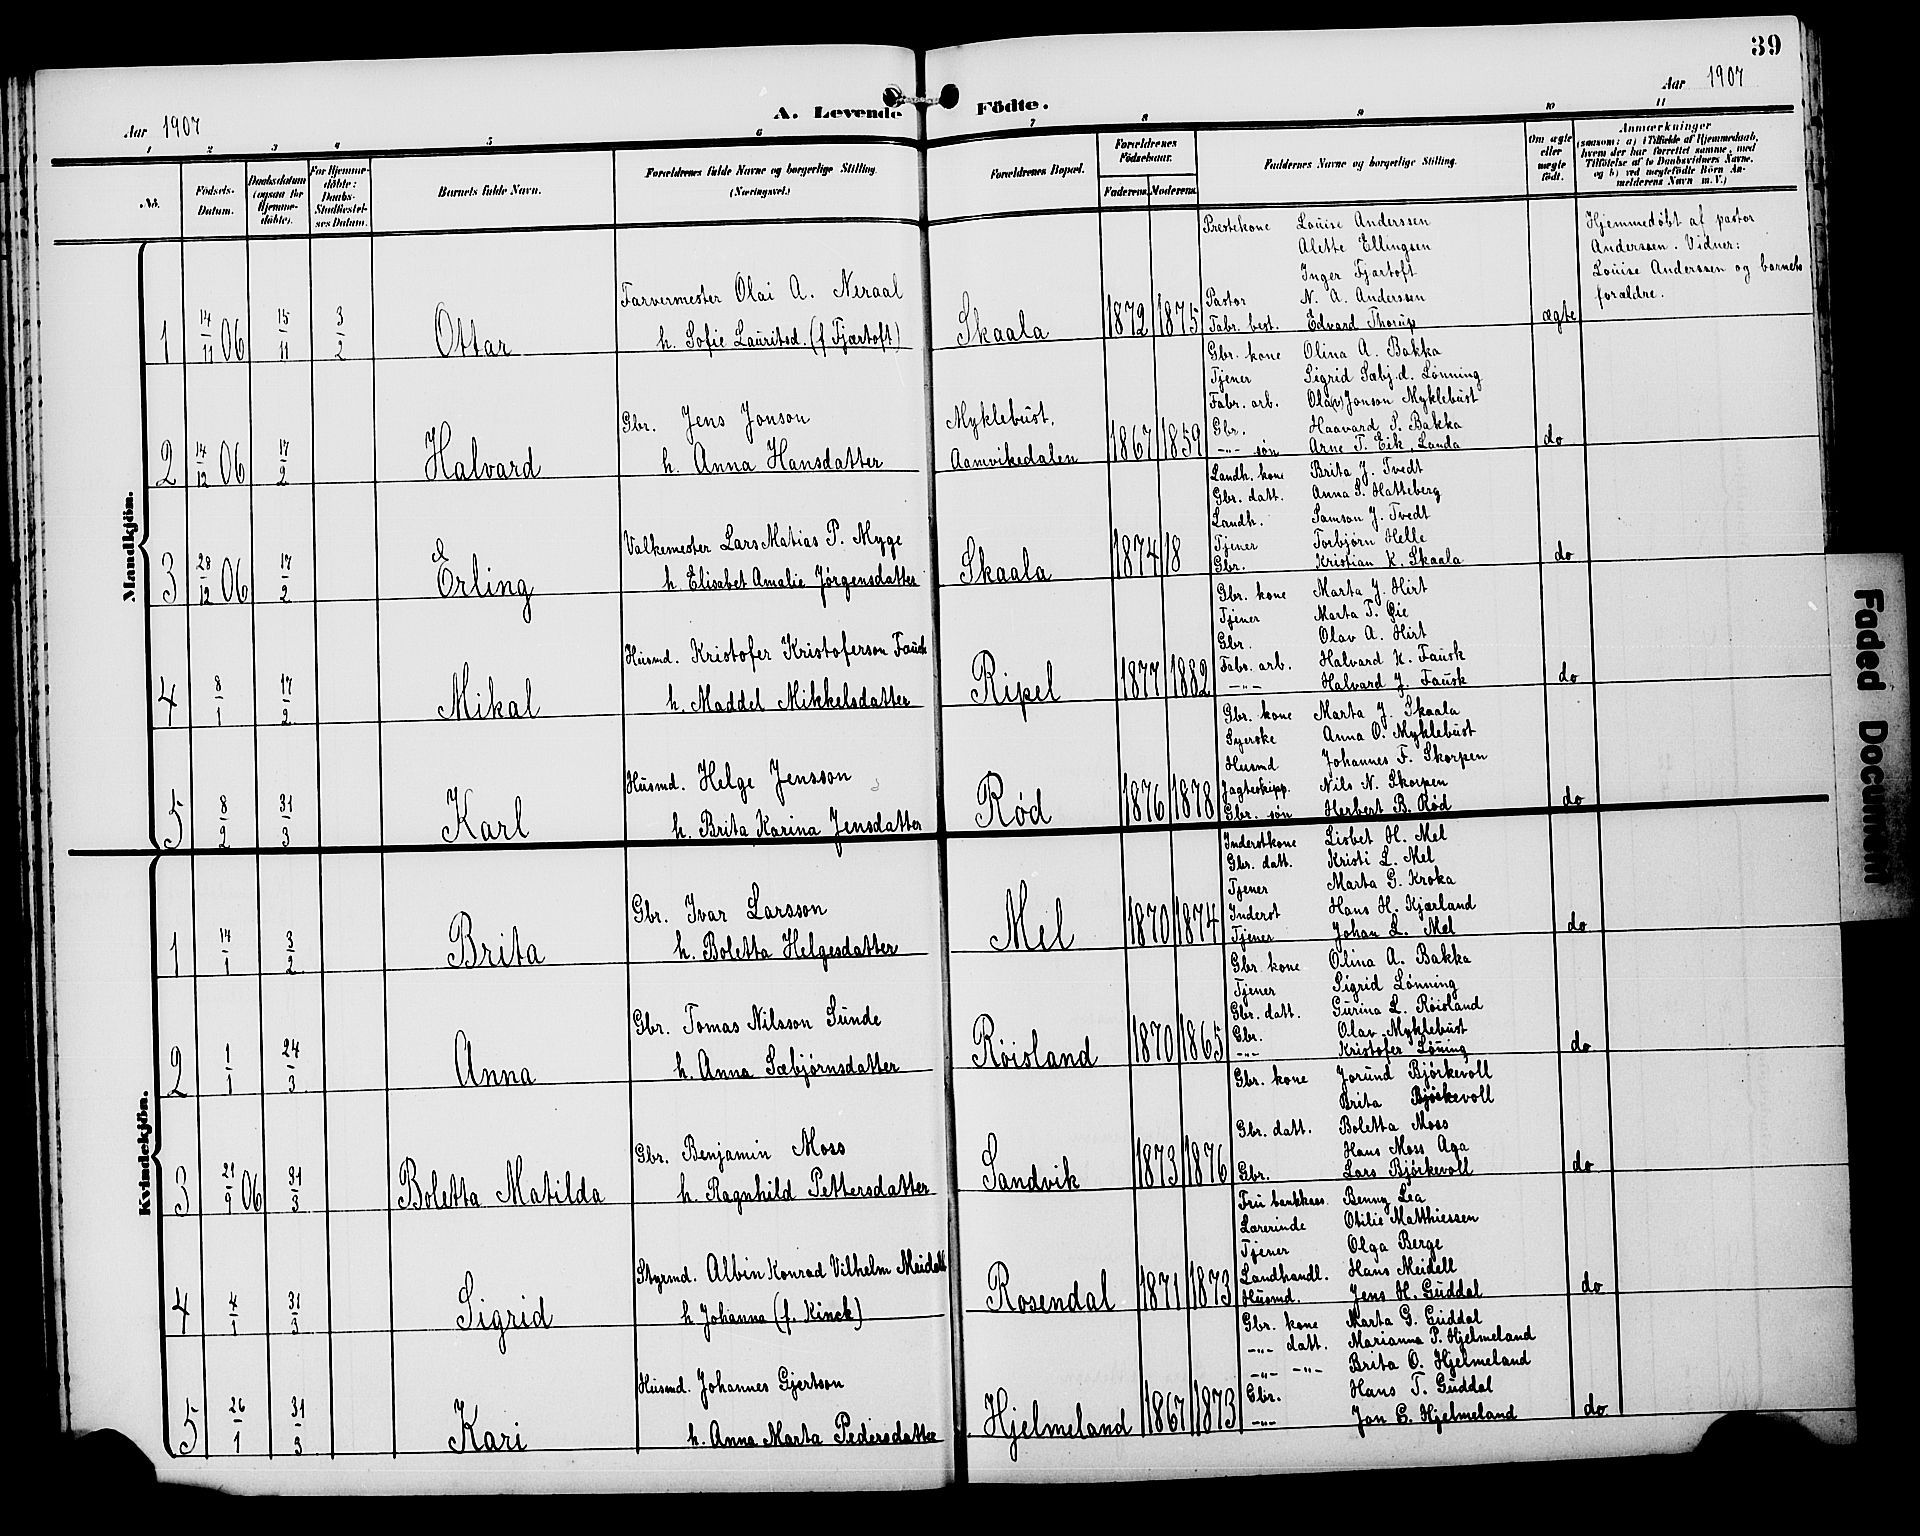 39
Aar 1907
A. Levende Födte.
Aar 1907
1 2 3 4 5 6 7 8 9 10 11
No.
Födsels-Datum.
Daabsdatum (ogsaa for Hjemme-döbte).
For Hjemme-döbte: Daabs-Stadfæstel-ses Datum.
Barnets fulde Navn.
Forældrenes fulde Navne og borgerlige Stilling.
(Næringsvei.)
Forældrenes Bopæl.
Forældrenes Födselsaar.
Faderens. Moderens.
Faddernes Navne og borgerlige Stilling.
Om ægte eller uægte födt.
Anmærkninger
(saasom: a) i Tilfælde af Hjemmedaab,
hvem der har forrettet samme, med
Tilföielse af to Daabsvidners Navne,
og b) ved uægtefödte Börn An-
melderens Navn m. V.)
Mandkjön.
1 14/11 06 15/11 3/2 Ottar
Farvermester Olai A. Neraal
h. Sofie Lauritsd. (f Fjærtoft)
Skaala 1872 1875
Prestekone Louise Anderssen
Alette Ellingsen
Inger Fjærtoft
Pastor N. A. Anderssen
Fabr. best. Edvard Thorup
ægte
Hjemmedøbt af pastor
Anderssen. Vidner:
Louise Anderssen og barnets
forældre.
2 14/12 06 17/2 Halvard
Gbr. Jens Jonson
h. Anna Hansdatter
Myklebust,
Aamvikedalen 1867 1859
Gbr. kone Olina A. Bakka
Tjener Sigrid Sæbj.d. Lønning
Fabr. arb. Ola(v) Jonson Myklebust
Gbr. Haavard P. Bakka
-"- søn Arne T. Eik, Landa
do
3 28/12 06 17/2 Erling
Valkemester Lars Matias P. Myge
h. Elisabet Amalie Jørgensdatter
Skaala 1874 18
Landh. kone Brita J. Tvedt
Gbr. datt. Anna S. Hatteberg
Landh. Samson J. Tvedt
Tjener Torbjørn Helle
Gbr. Kristian K. Skaala
do
4 8/1 17/2 Mikal
Husmd. Kristofer Kristoferson Fausk
h. Maddel Mikkelsdatter
Ripel 1877 1882
Gbr. kone Marta J. Hirt
Tjener Marta T. Øie
Gbr. Olav A. Hirt
Fabr. arb. Halvard K. Fausk
-"- Halvard J. Fausk
do
5 8/2 31/3 Karl
Husmd. Helge Jensson
h. Brita Karina Jensdatter
Rød 1876 1878
Gbr. kone Marta J. Skaala
Syerske Anna O. Myklebust
Husmd Johannes F. Skorpen
Jagteskipp. Nils N. Skorpen
Gbr. søn Herbert B. Rød
do
Kvindekjön.
1 14/1 3/2 Brita
Gbr. Ivar Larsson
h. Boletta Helgesdatter
Mel 1870 1874
Inderstkone Lisbet H. Mel
Gbr. datt. Kristi L. Mel
Tjener Marta G. Kroka
Inderst Hans H. Kjærland
Tjener Johan L. Mel
do
2 1/1 24/3 Anna
Gbr. Tomas Nilsson Sunde
h. Anna Sæbjørnsdatter
Røisland 1870 1865
Gbr. kone Olina A. Bakka
Tjener Sigrid Lønning
Gbr. datt. Gurina L. Røisland
Gbr. Olav Myklebust
-"- Kristofer Løning
do
3 21/9 06 31/3 Boletta Matilda
Gbr. Benjamin Moss
h. Ragnhild Pettersdatter
Sandvik 1873 1876
Gbr. kone Jorund Bjørkevoll
Brita Bjørkevoll
Gbr. datt. Boletta Moss
Hans Moss Aga
Gbr. Lars Bjørkevoll
do
4 4/1 31/3 Sigrid
Styrmd. Albin Konrad Vilhelm Meidell
h Johanna (f. Kinck)
Rosendal 1871 1873
Fru bankkass. Benny Lea
Lærerinde Otilie Matthiessen
Tjener Olga Berge
Landhandl. Hans Meidell
Husmd. Jens H. Guddal
do
5 26/1 31/3 Kari
Husmd. Johannes Gjertson
h. Anna Marta Pedersdatter
Hjelmeland 1867 1873
Gbr. kone Marta G. Guddal
-"- datt. Marianna P. Hjelmeland
-"- -"- Brita O. Hjelmeland
Gbr. Hans T. Guddal
-"- Jon G. Hjelmeland
do
Faded Document